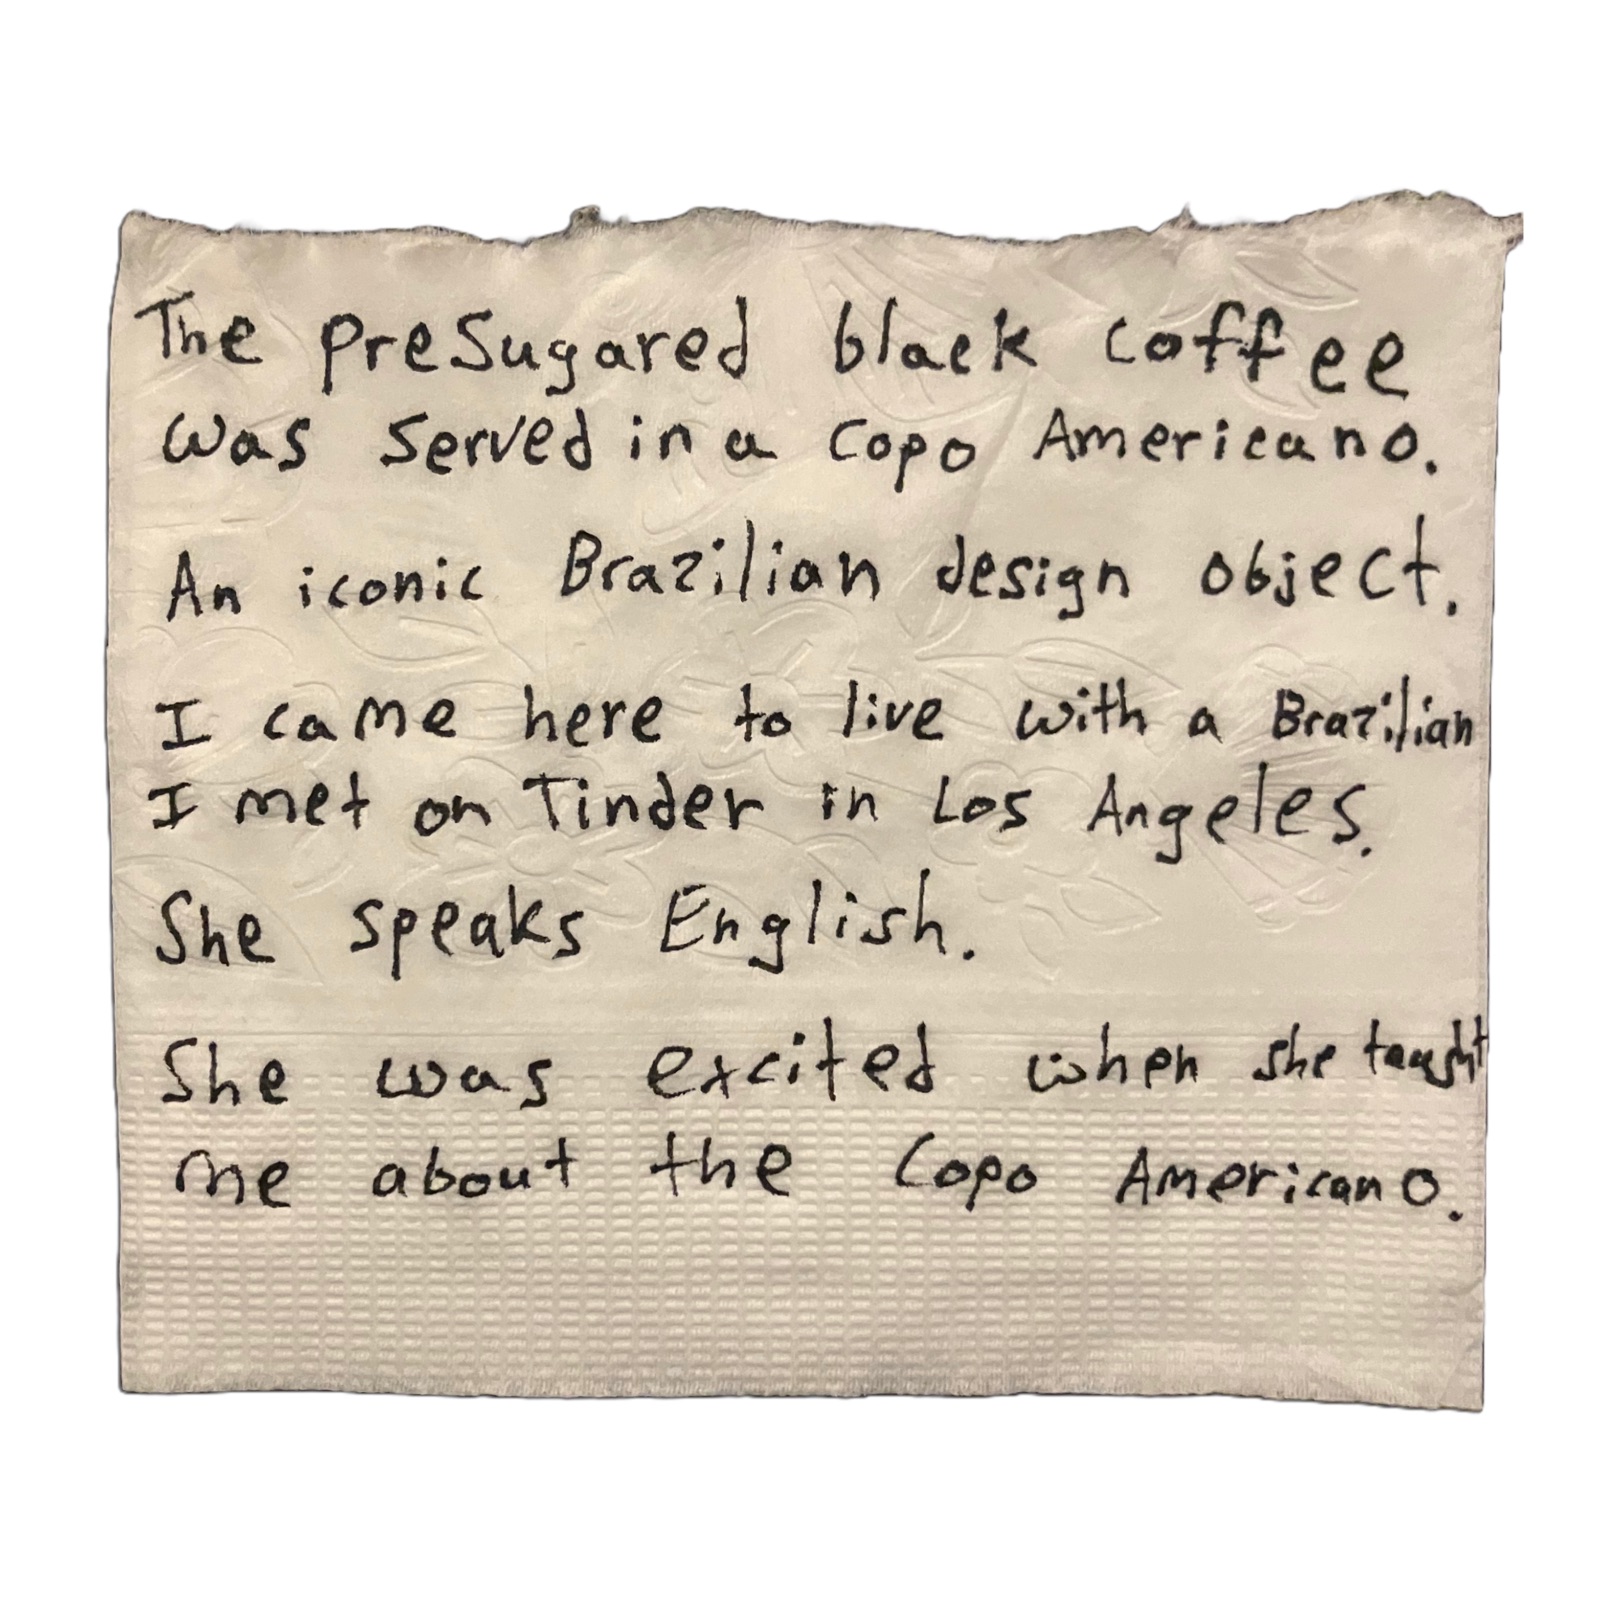 The presugared black coffee
was served in a Copo Americano.
An iconic Brazilian design object.
I came here to live with a Brazilian
I met on Tinder in Los Angeles.
She speaks English.
She was excited when she taught
me about the Copo Americano.